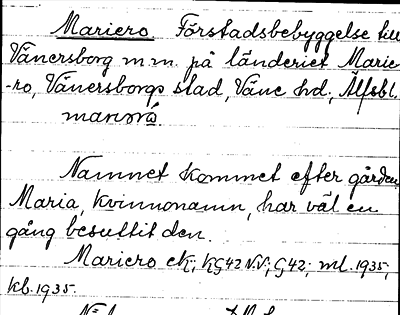 Mariero Förstadsbebyggelse till
Vänersborg m.m. på länderiet Marie-
-ro, Vänersborgs stad, Väne hd, Älfsbl.
Namnet kommet efter gården
Maria, kvinnonamn, har väl en
gång besuttit den.
Mariero ek; KG42 N.V; G42; ml. 1935,
kb. 1935.